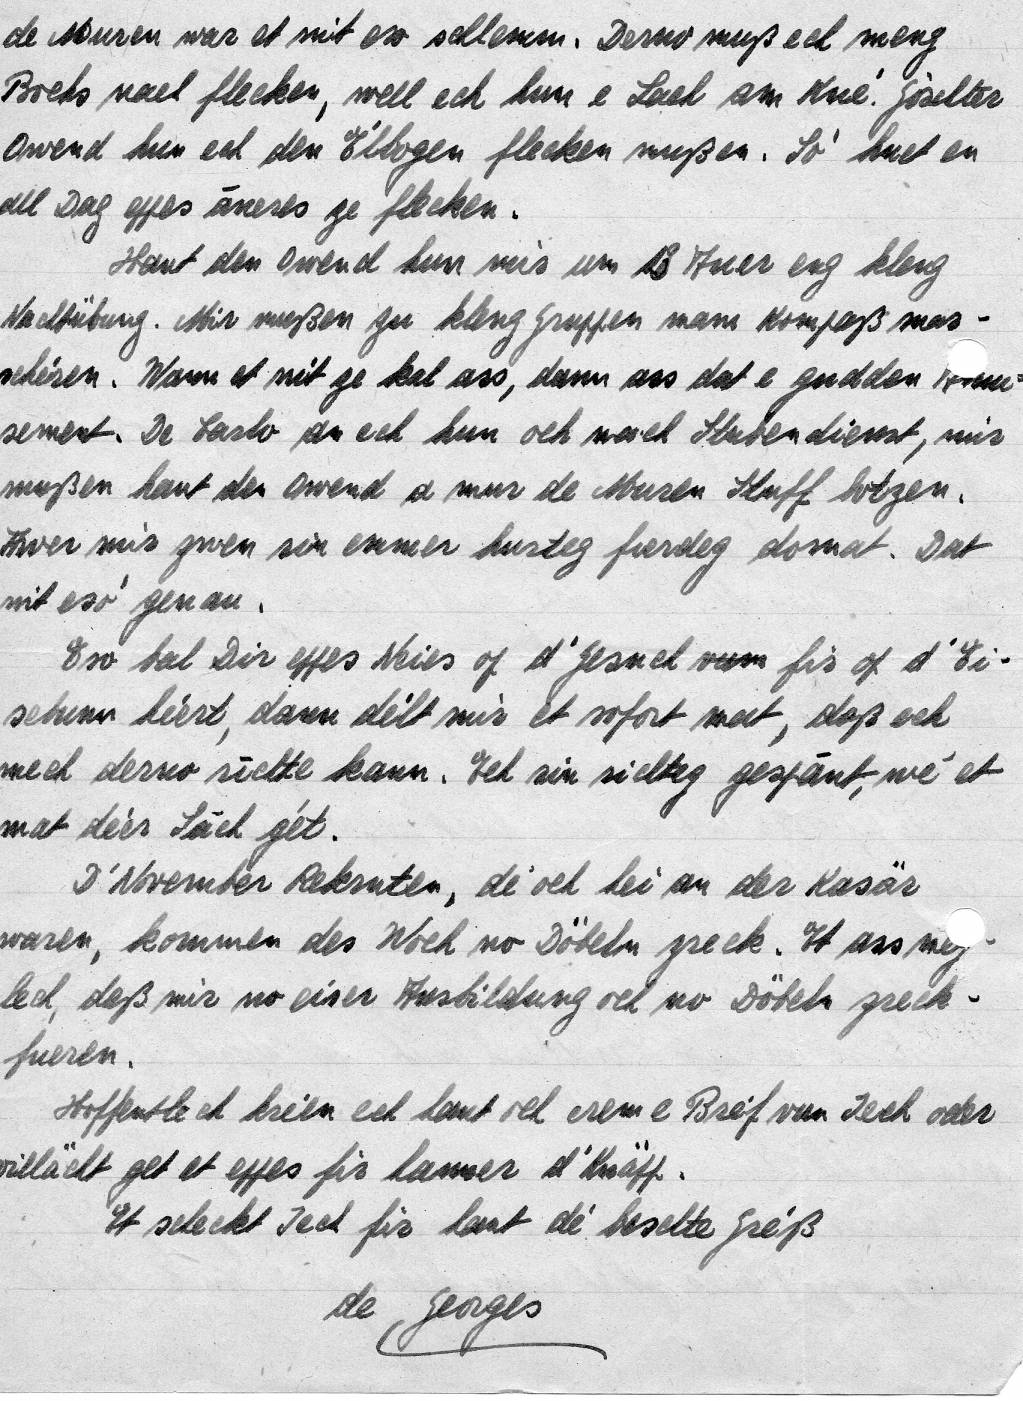 de Muren war et nit eso schlemm. Derno muß ech meng
Bochs nach flecken, well ech hun e Lach am Kné. Gëschter
Owend hun ech den Élbogen flecken mußen. Só huet en
all Dag eppes āneres ze flecken.
Haut den Owend hun mir um 18 Auer eng kleng
Nachtübung. Mir mußen zu kleng Gruppen mam Kompaß mar-
schéiren. Wann et nit ze kal ass, dann ass dat e gudden Amu-
sement. De Carlo an ech hun och nach Stubendienst, mir
mußen haut den Owend a mur de Muren Stuff botzen.
Awer mir zwen sin emmer hurteg færdeg domat. Dat
nit esó genau.
Eso bal Dir eppes Neies op d'Gesuch fir op d'Ei-
sebunn héiert, dann délt mir et sofort mat, daß ech
mech derno riichte kann. Ech sin richteg gespānt, wé et
mat déer Sāch gét.
D'November Rekruten, dé och hei an der Kasär
waren, kommen des Woch no Döbeln zreck. Et ass még-
lech, daß mir no eiser Ausbildung och no Döbeln zreck-
fueren.
Hoffentlech kréien ech haut och erem e Bréf vun Iech oder
villācht get et eppes fir hanner d'Knäpp.
Et scheckt Iech fir haut dé beschte Gréß
de Georges